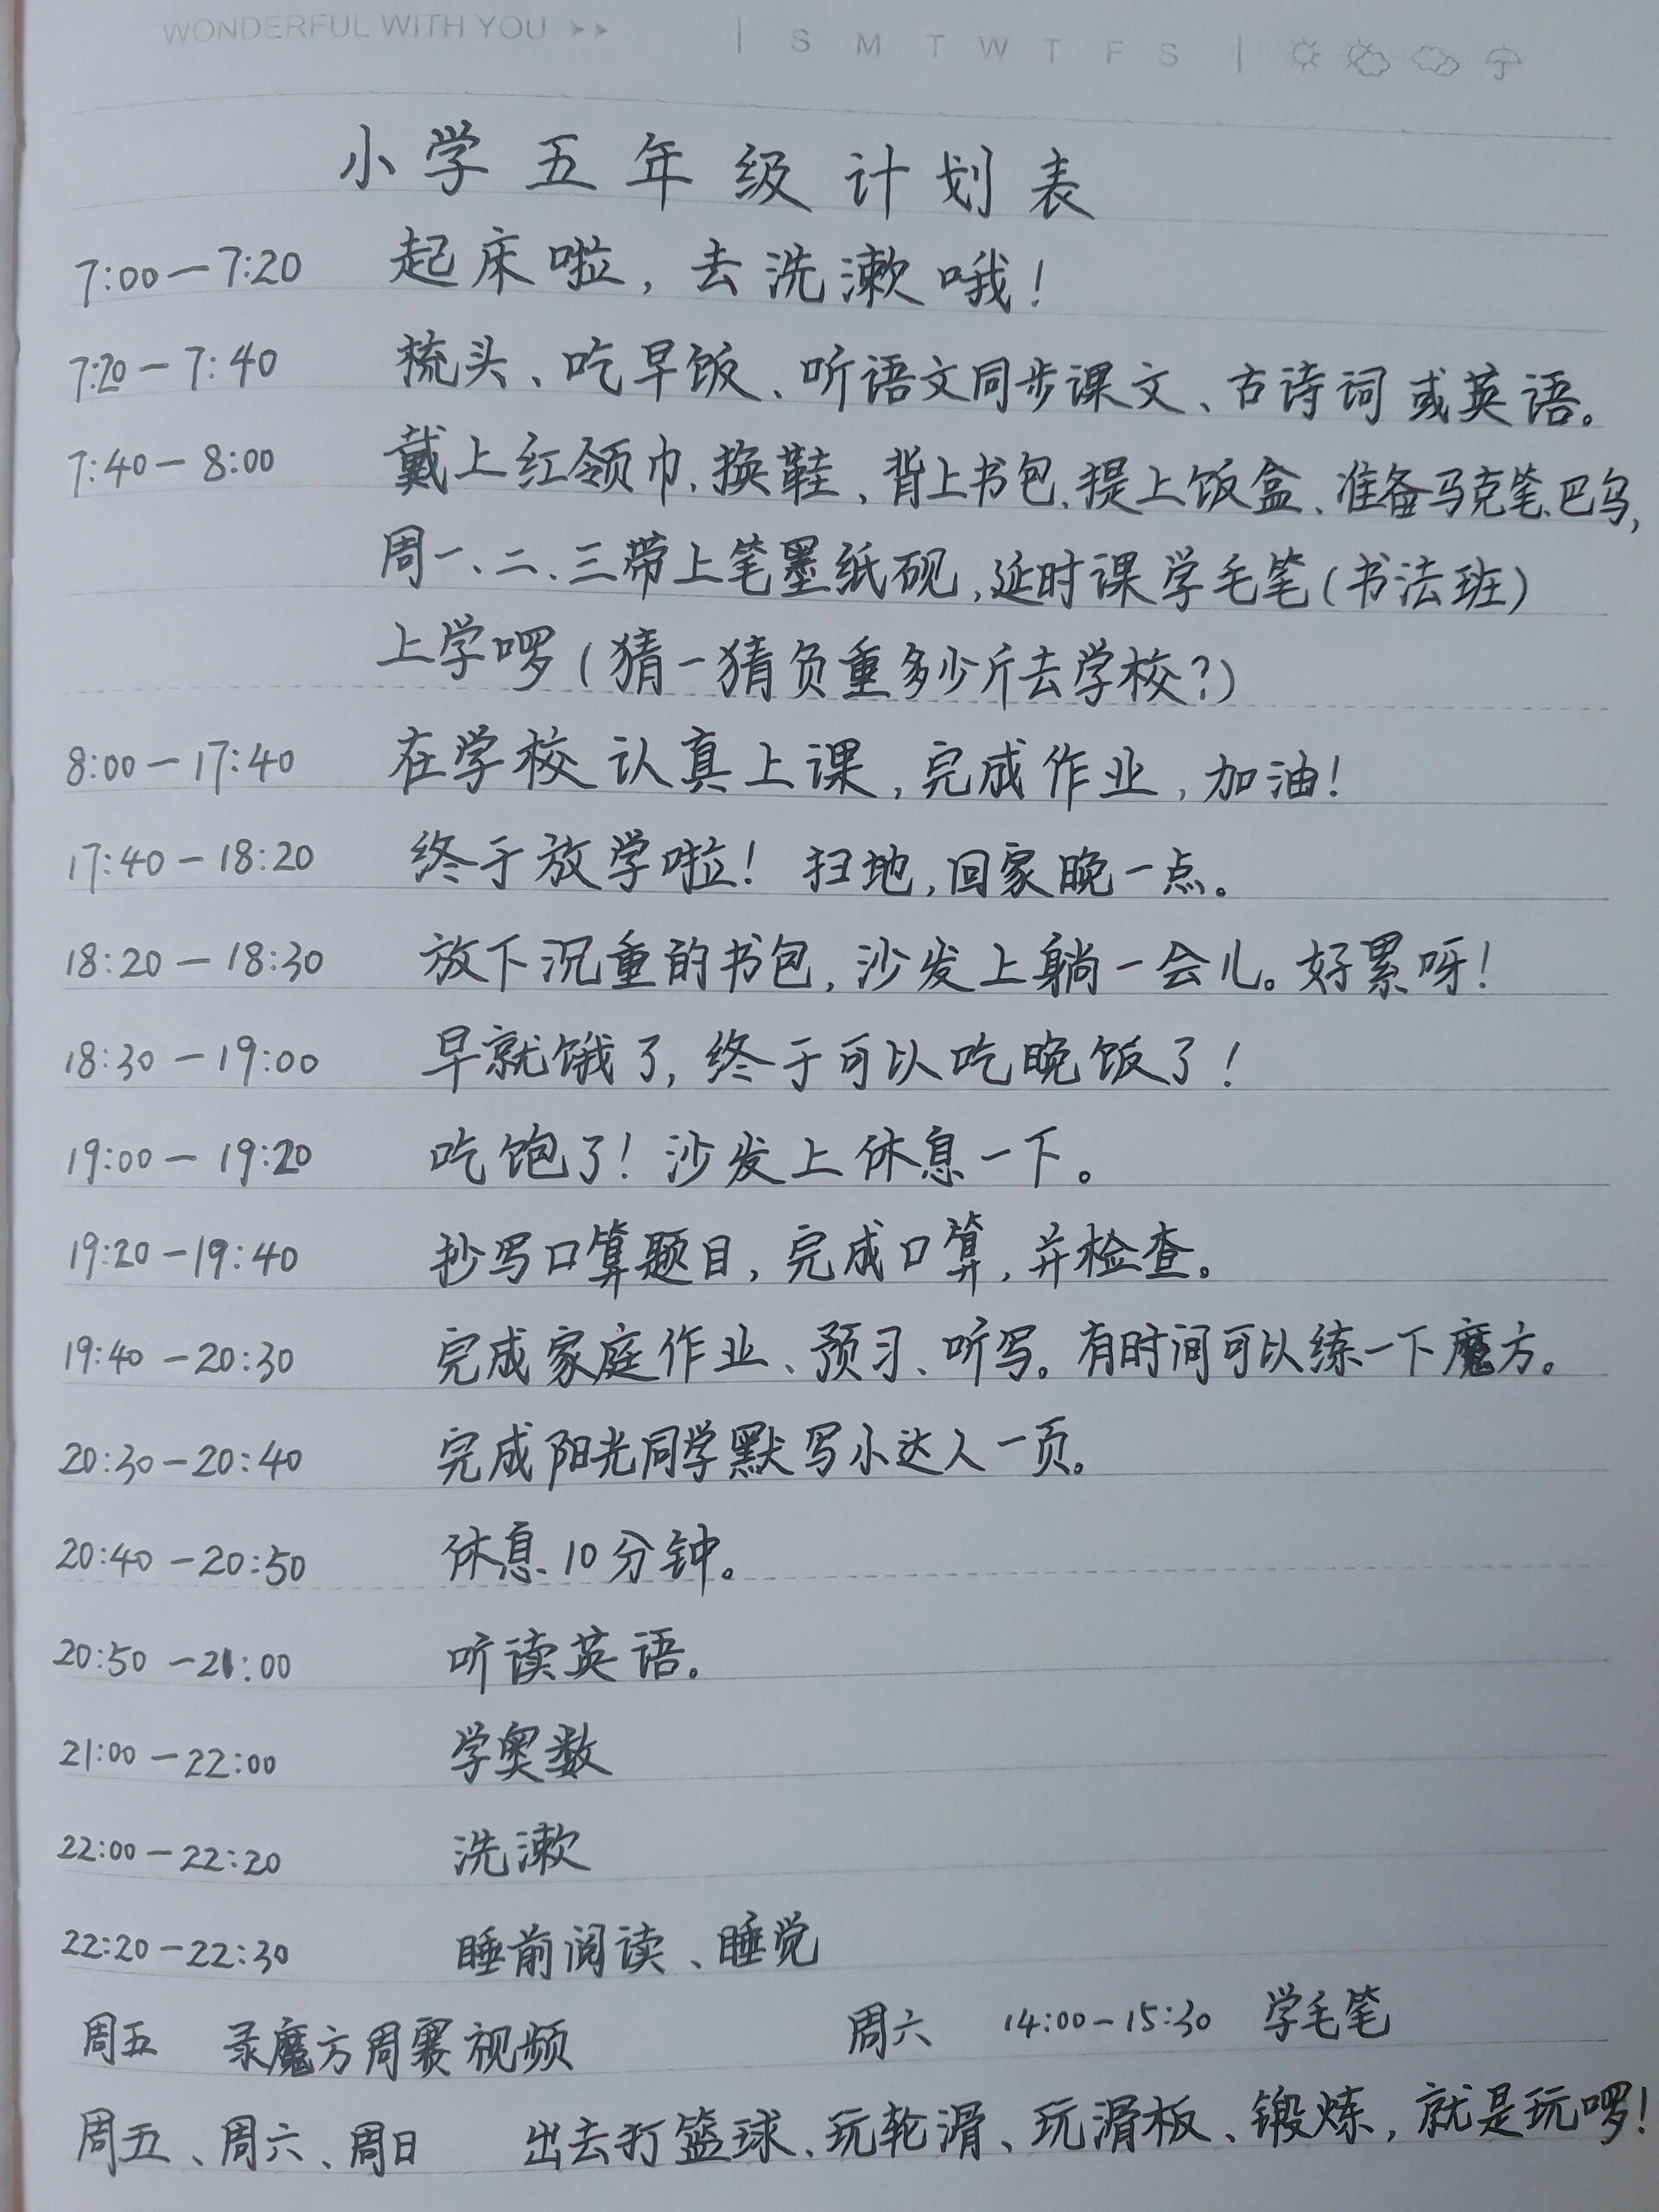 WONDERFUL WITH YOU | S M T W T F S |
小学五年级计划表
7:00—7:20 起床啦，去洗漱哦！
7:20—7:40 梳头、吃早饭、听语文同步课文、古诗词或英语。
7:40—8:00 戴上红领巾、换鞋、背上书包、提上饭盒、准备马克笔、巴乌，
周一、二、三带上笔墨纸砚，延时课学毛笔（书法班）
上学啰（猜一猜负重多少斤去学校？）
8:00—17:40 在学校认真上课，完成作业，加油！
17:40—18:20 终于放学啦！扫地，回家晚一点。
18:20—18:30 放下沉重的书包，沙发上躺一会儿。好累呀！
18:30—19:00 早就饿了，终于可以吃晚饭了！
19:00—19:20 吃饱了！沙发上休息一下。
19:20—19:40 抄写口算题目，完成口算，并检查。
19:40—20:30 完成家庭作业、预习、听写。有时间可以练一下魔方。
20:30—20:40 完成阳光同学默写小达人一页。
20:40—20:50 休息10分钟。
20:50—21:00 听读英语。
21:00—22:00 学奥数
22:00—22:20 洗漱
22:20—22:30 睡前阅读、睡觉
周五 录魔方周赛视频 周六 14:00—15:30 学毛笔
周五、周六、周日 出去打篮球、玩轮滑、玩滑板、锻炼，就是玩啰！